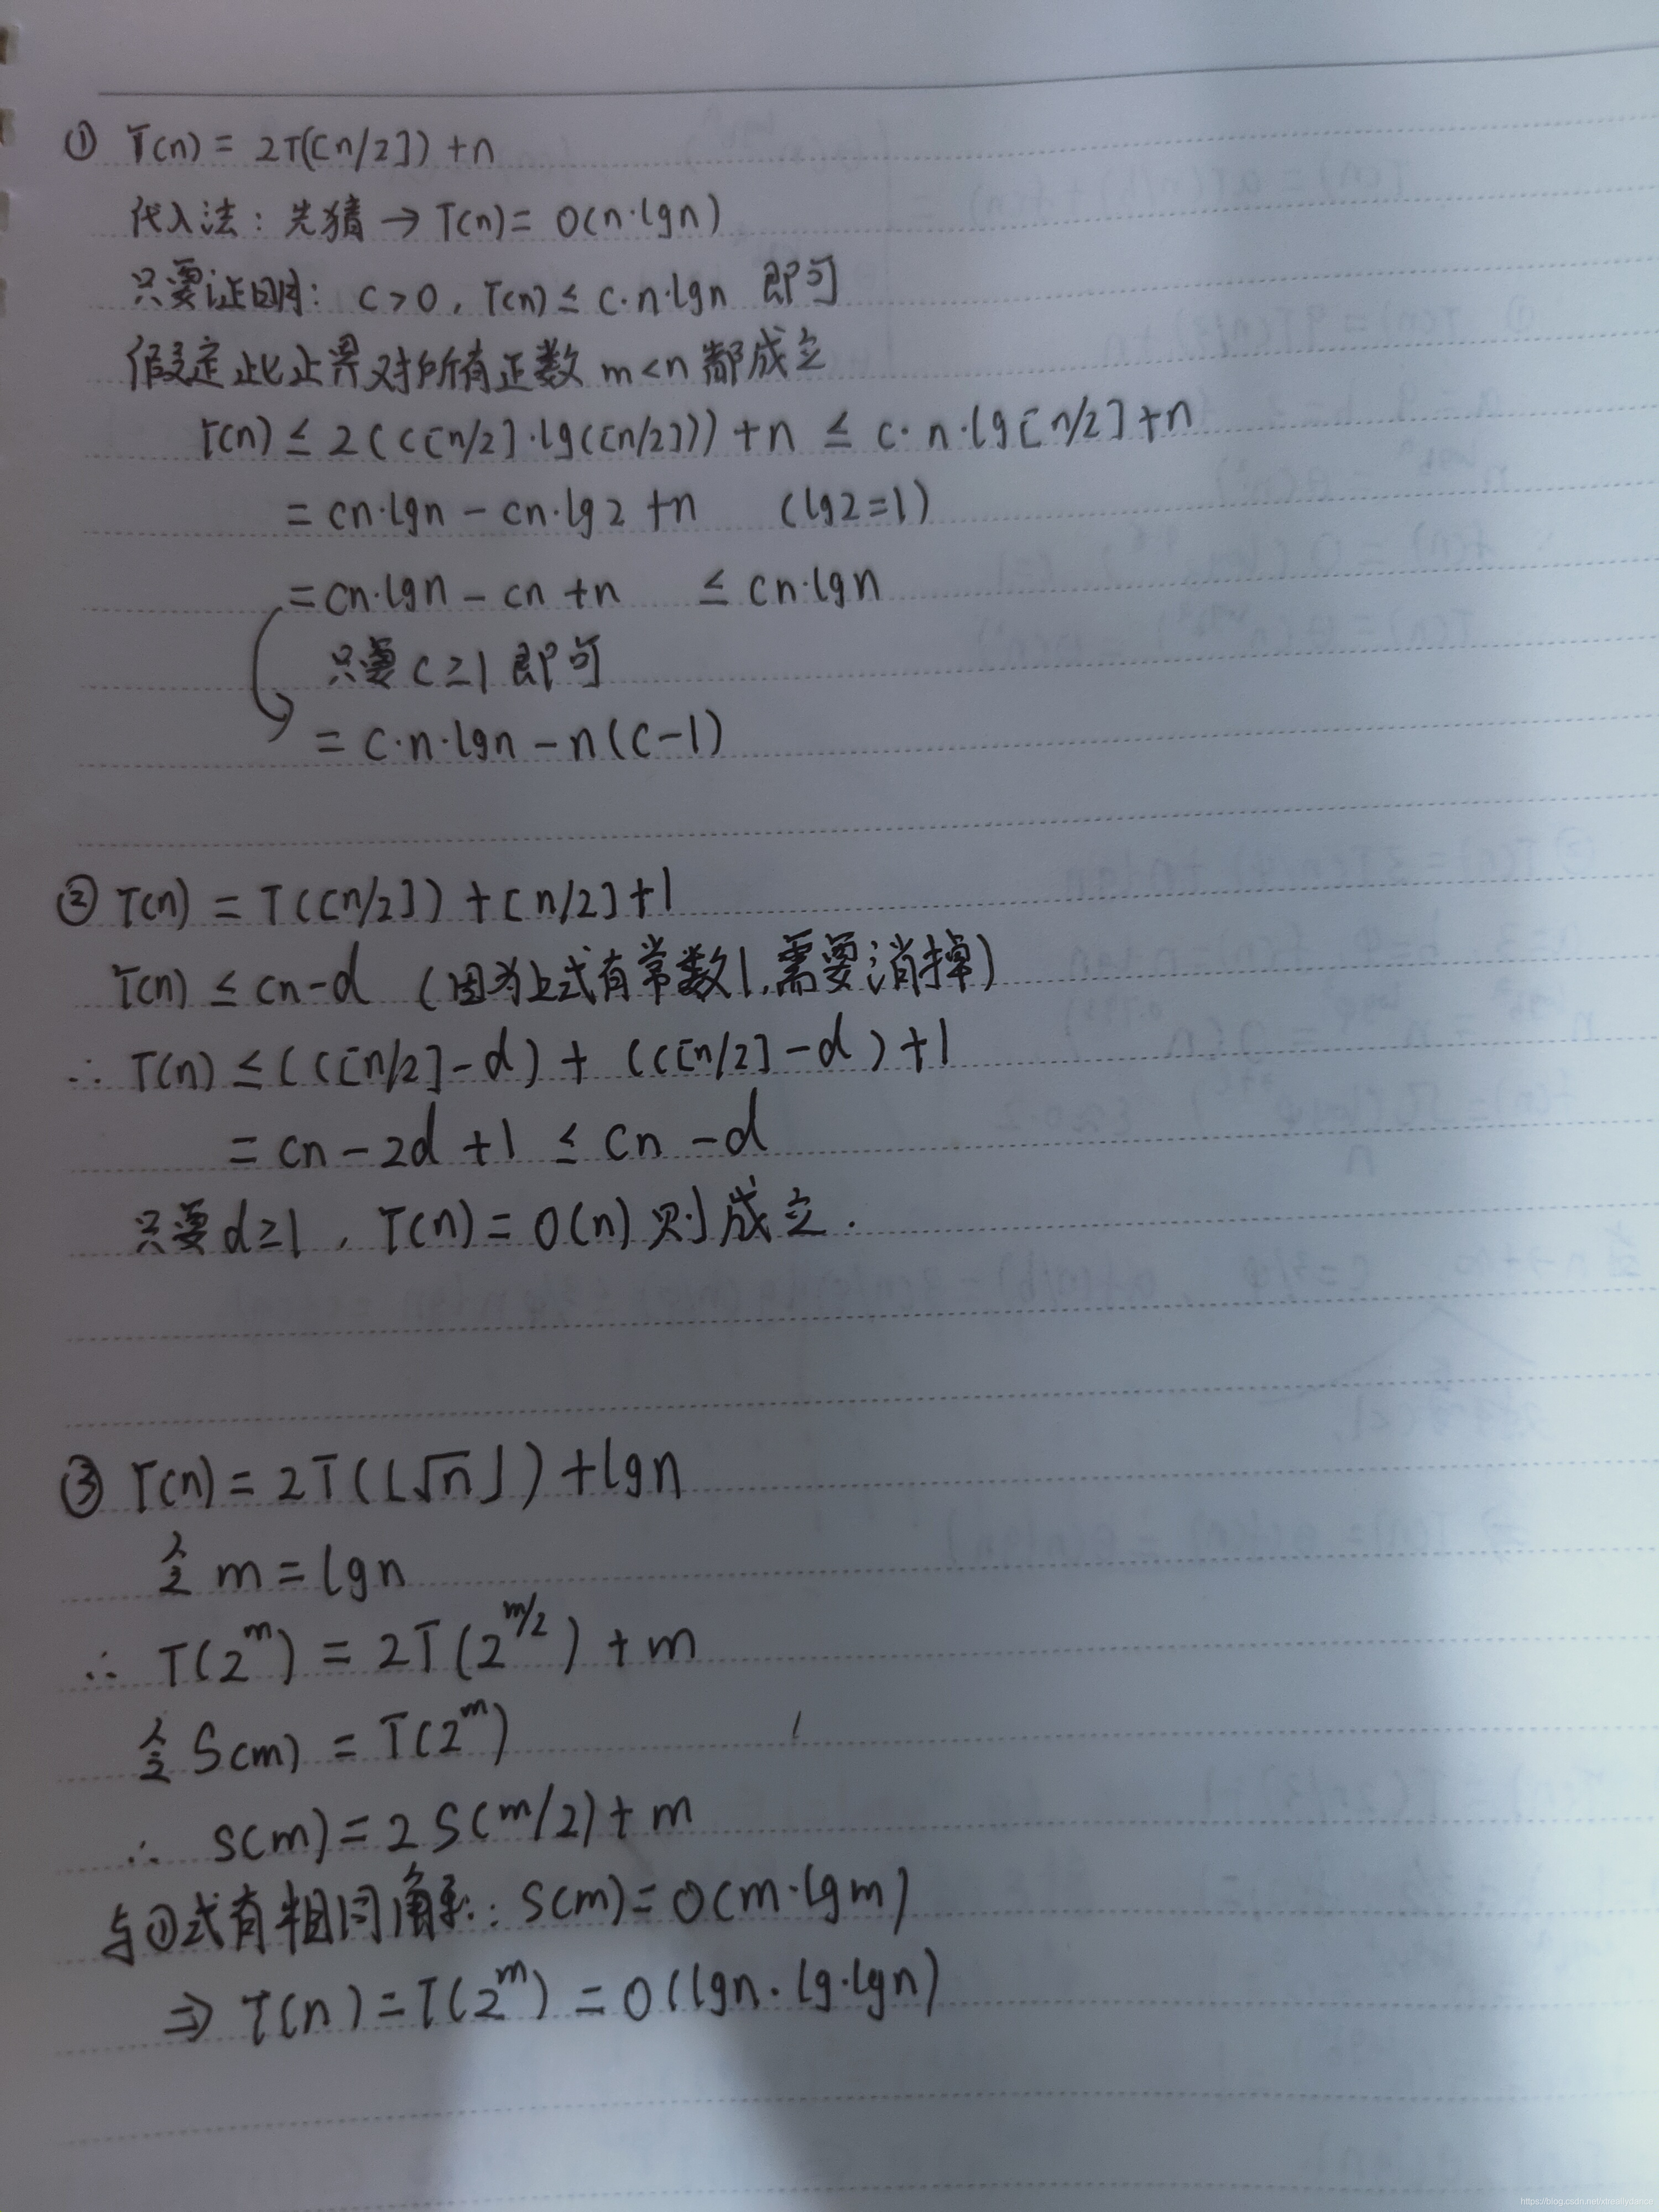 ① T(n) = 2T([n/2]) + n
代入法: 先猜 → T(n) = O(n·lgn)
只要证明: c>0, T(n) ≤ c·n·lgn 即可
假定此上界对所有正数 m<n 都成立
T(n) ≤ 2(c[n/2]·lg([n/2])) + n ≤ c·n·lg[n/2] + n
= cn·lgn - cn·lg2 + n (lg2=1)
= cn·lgn - cn + n ≤ cn·lgn
只要 c≥1 即可
= c·n·lgn - n(c-1)
② T(n) = T([n/2]) + [n/2] + 1
T(n) ≤ cn-d (因为上式有常数1,需要消掉)
∴ T(n) ≤ (c[n/2]-d) + (c[n/2]-d) + 1
= cn - 2d + 1 ≤ cn - d
只要 d≥1, T(n) = O(n) 则成立.
③ T(n) = 2T(⌊√n⌋) + lgn
令 m = lgn
∴ T(2^m) = 2T(2^{m/2}) + m
令 S(m) = T(2^m)
∴ S(m) = 2S(m/2) + m
与①式有相同解∴ S(m) = O(m·lgm)
⇒ T(n) = T(2^m) = O(lgn·lg·lgn)